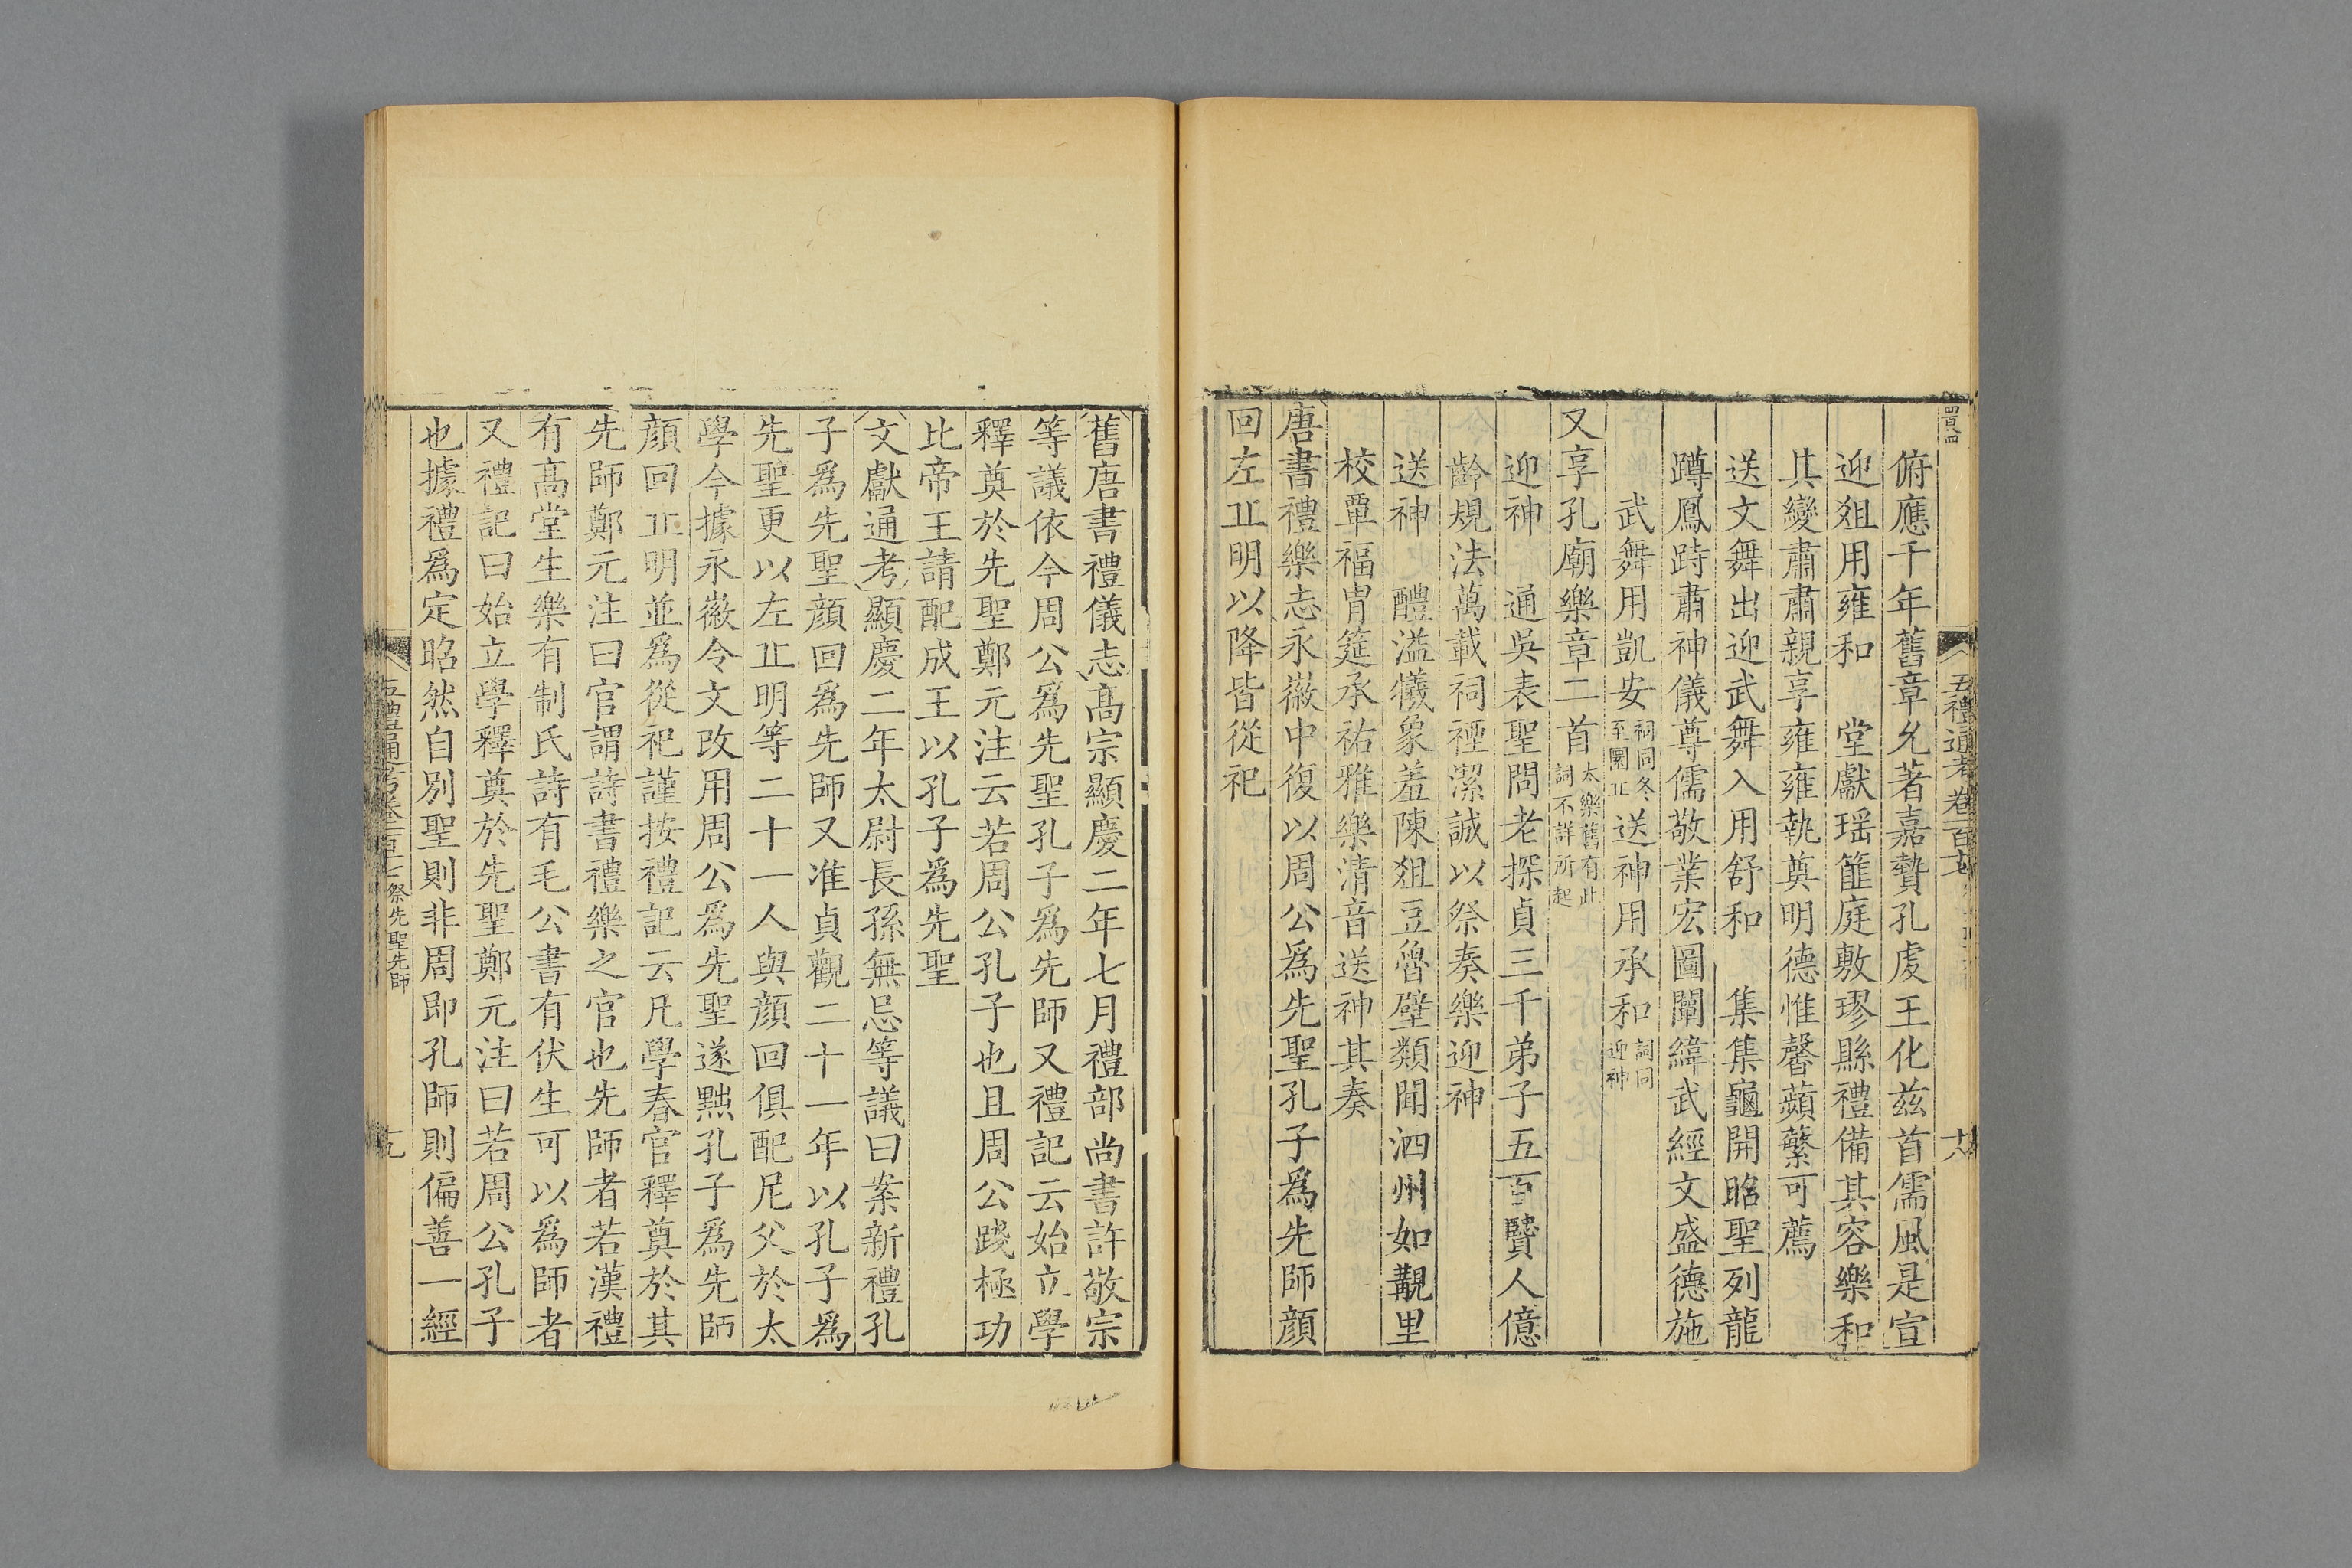 俯應千年舊章允著嘉贄孔虔王化兹首儒風是宣
迎俎用雍和　堂獻瑶篚庭敷璆縣禮備其容樂和
其變肅肅親享雍雍執奠明德惟馨蘋蘩可薦
送文舞出迎武舞入用舒和　集集龜開昭聖列龍
蹲鳳跱肅神儀尊儒敬業宏圖闡緯武經文盛德施
武舞用凱安祠同冬至圜丘送神用承和詞同迎神
又享孔廟樂章二首太樂舊有此詞不詳所起
迎神　通吳表聖問老探貞三千弟子五百賢人億
齡規法萬載祠禋潔誠以祭奏樂迎神
送神　醴溢犧象羞陳俎豆魯壁類聞泗州如覯里
校覃福胄筵承祐雅樂清音送神其奏
唐書禮樂志永徽中復以周公爲先聖孔子爲先師顔
回左丠明以降皆從祀
五禮通考卷一百十七
十八
舊唐書禮儀志高宗顯慶二年七月禮部尚書許敬宗
等議依今周公爲先聖孔子爲先師又禮記云始立學
釋奠於先聖鄭元注云若周公孔子也且周公踐極功
比帝王請配成王以孔子爲先聖
文獻通考顯慶二年太尉長孫無忌等議曰案新禮孔
子爲先聖顔回爲先師又准貞觀二十一年以孔子爲
先聖更以左丠明等二十一人與顔回俱配尼父於太
學今據永徽令文改用周公爲先聖遂黜孔子爲先師
顔回丠明並爲從祀謹按禮記云凡學春官釋奠於其
先師鄭元注曰官謂詩書禮樂之官也先師者若漢禮
有高堂生樂有制氏詩有毛公書有伏生可以爲師者
又禮記曰始立學釋奠於先聖鄭元注曰若周公孔子
也據禮爲定昭然自別聖則非周即孔師則偏善一經
五禮通考卷一百十七 祭先聖先師